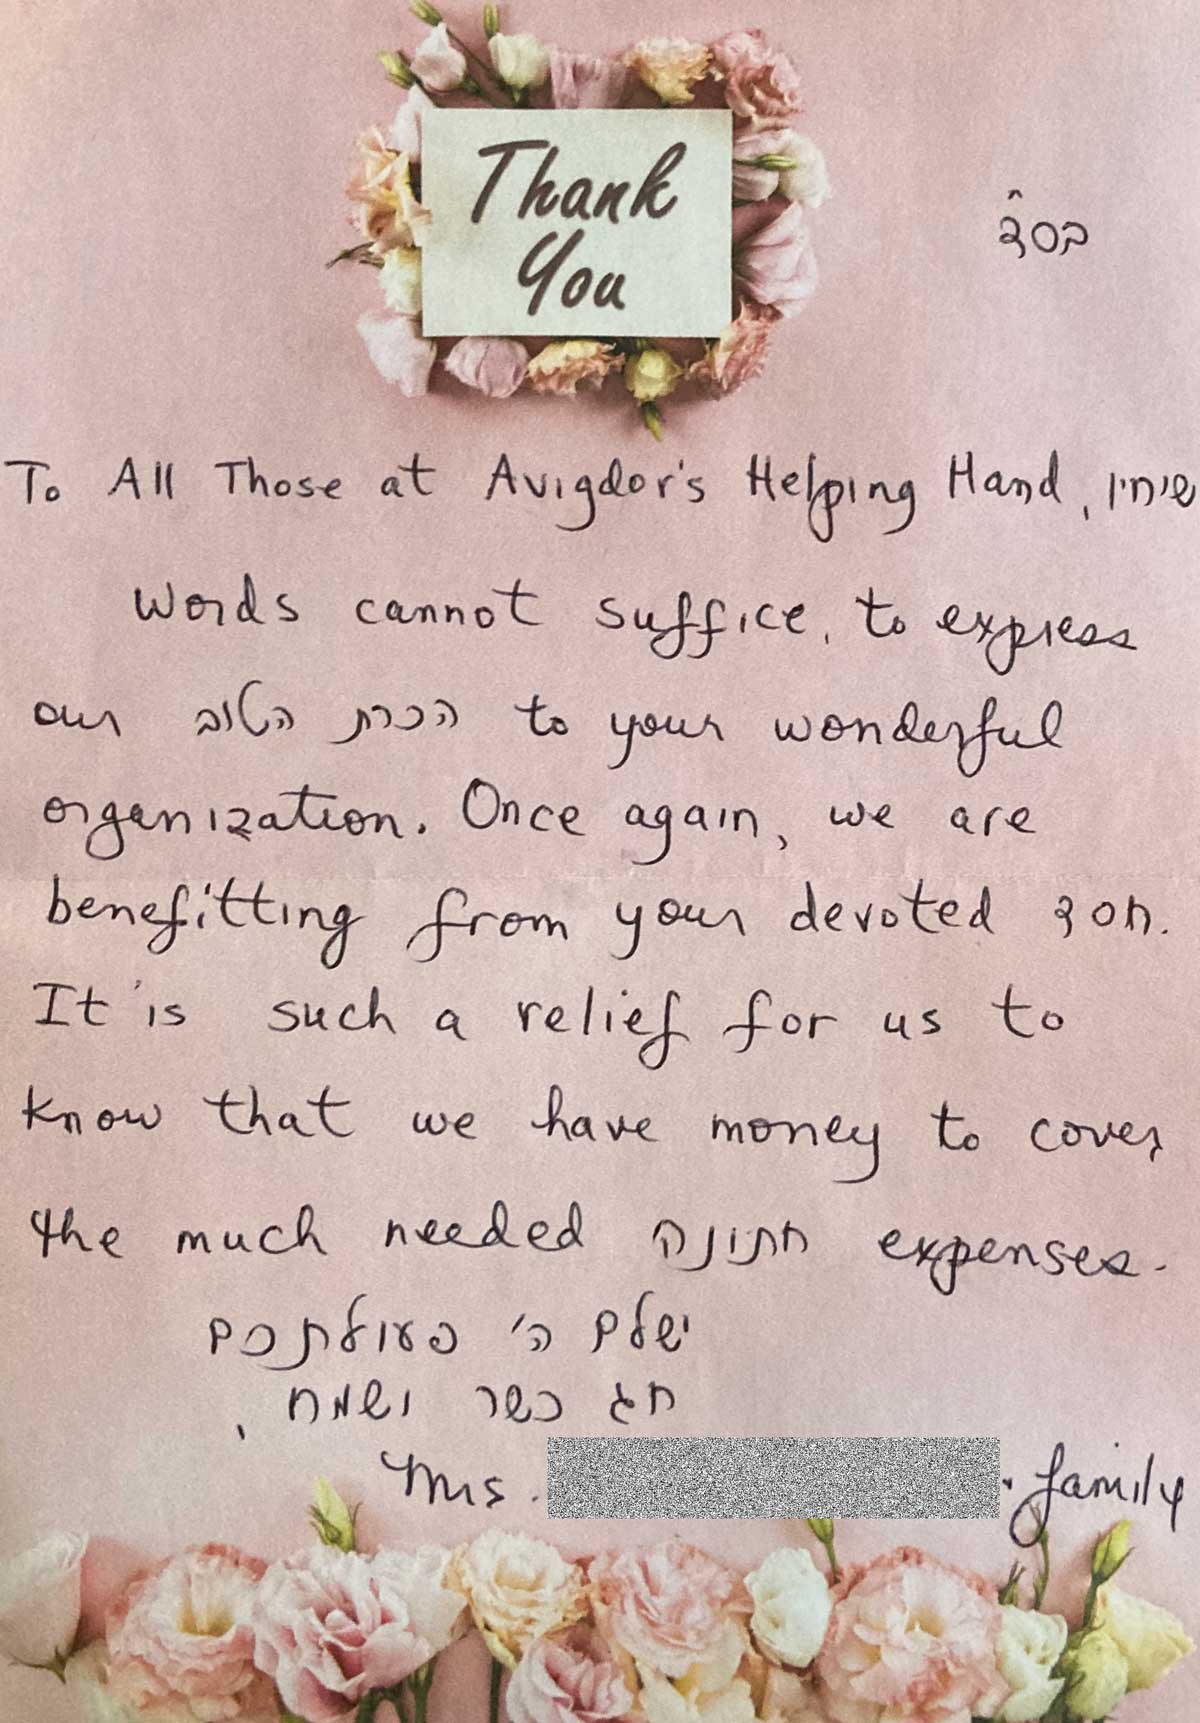 Thank
You
בס"ד
To All Those at Avigdor's Helping Hand, שיחיו
Words cannot suffice, to express
our הכרת הטוב to your wonderful
organization. Once again, we are
benefitting from your devoted חסד.
It is such a relief for us to
know that we have money to cover
the much needed חתונה expenses.
ישלם ה' פעולתכם
חג כשר ושמח,
Mrs. family